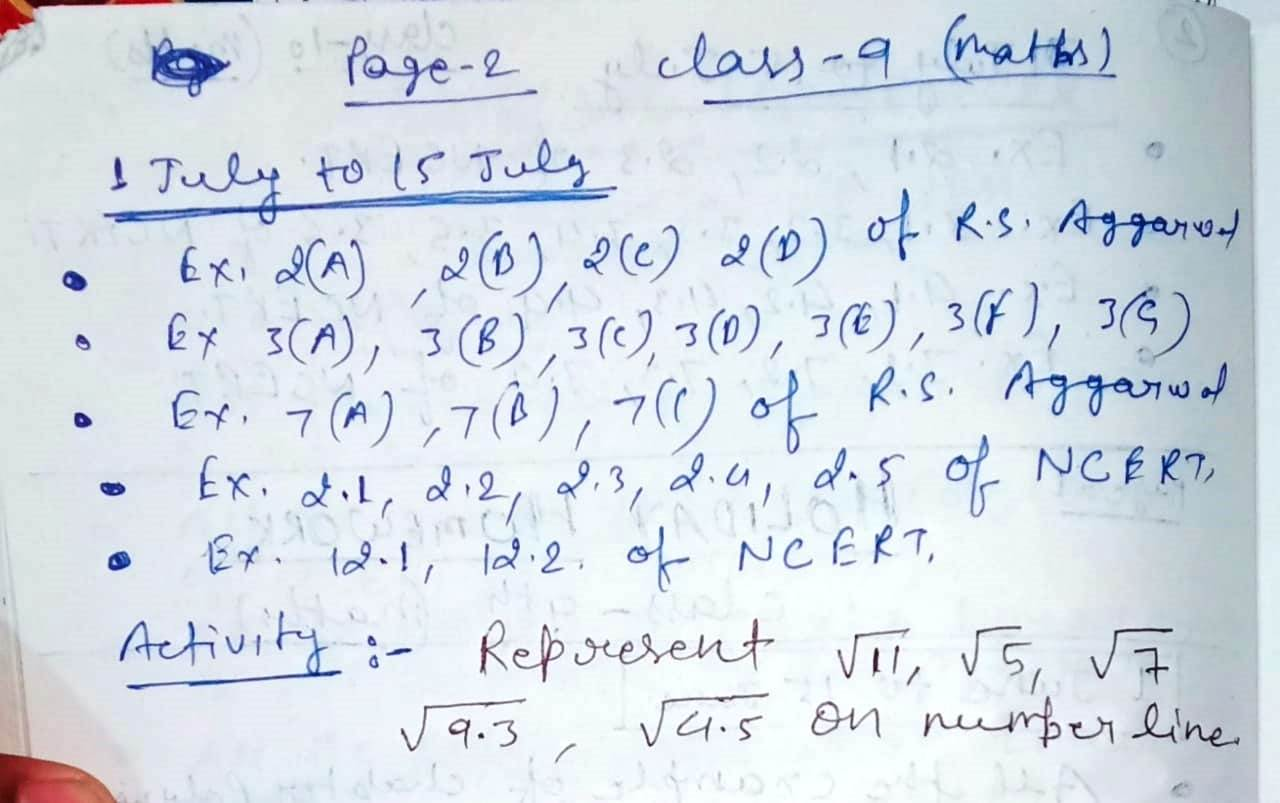 Page-2 class-9 (maths)
1 July to 15 July
• Ex. 2(A), 2(B), 2(C) 2(D) of R.S. Aggarwal
• Ex 3(A), 3(B), 3(C), 3(D), 3(E), 3(F), 3(G)
• Ex. 7(A), 7(B), 7(C) of R.S. Aggarwal
• Ex. 2.1, 2.2, 2.3, 2.4, 2.5 of NCERT,
• Ex. 12.1, 12.2. of NCERT.
Activity :- Represent √11, √5, √7
√9.3, √4.5 on number line.